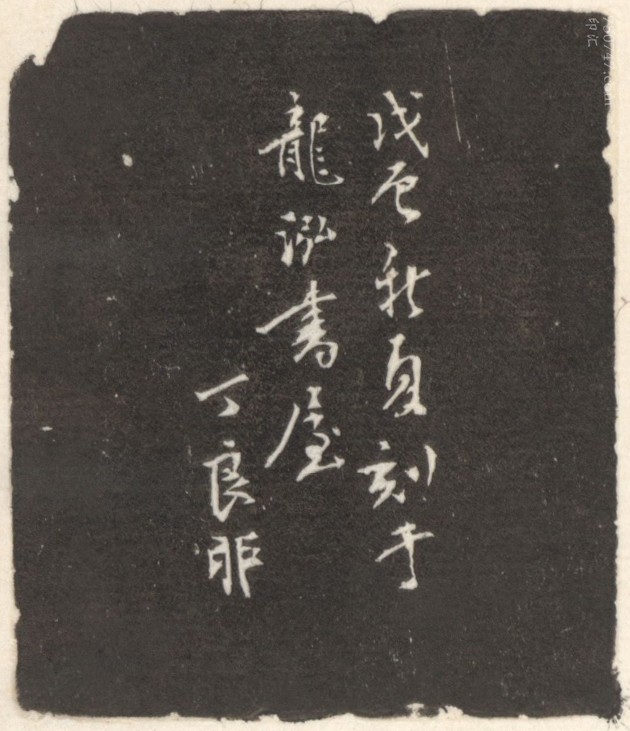 戊辰夏刻于
龍泓書屋
丁良卯
印汇